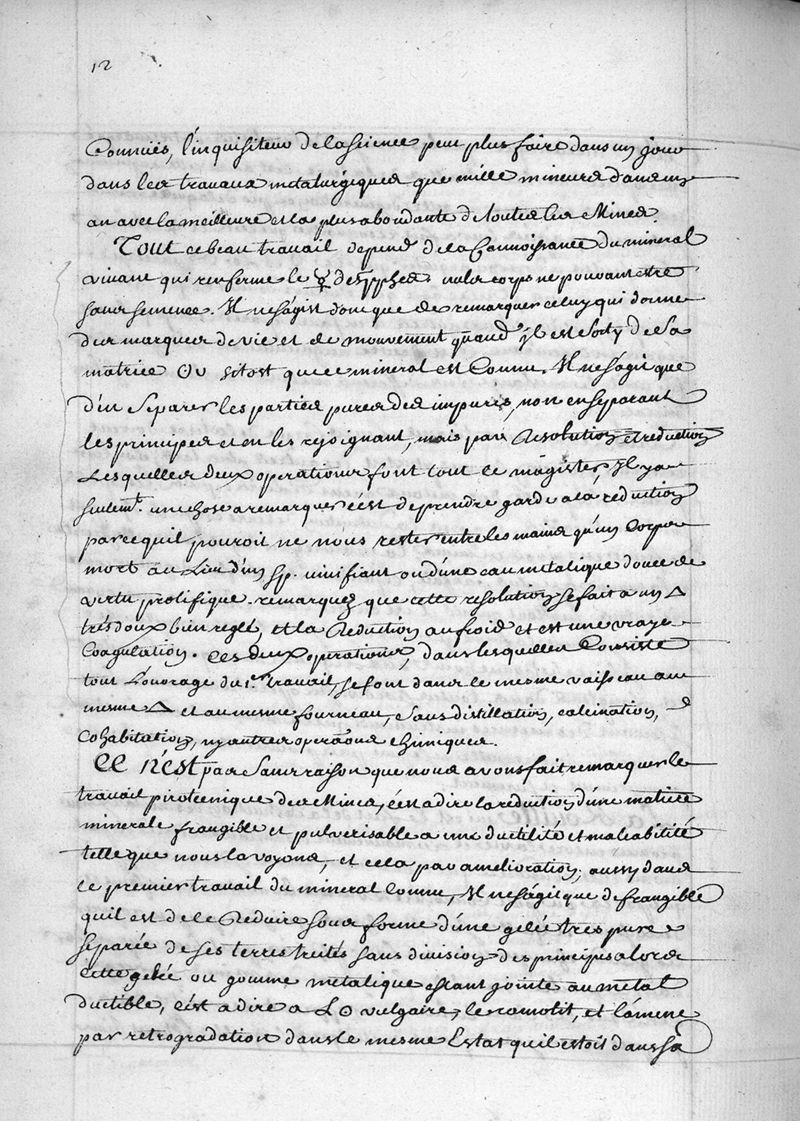 12
Connües, l'inquisiteur de la science peut plus faire dans un jour
dans les travaux metalurgiques que mille mineurs dans un
an avec la meilleure et la plus abondante de toutes les Mines.
Tout ce beau travail depend de la Connoissance du mineral
vivant qui renferme le ☿ des φφes. nuls corps ne pouvant estre
sans semence. Il ne s'agist donc que de remarquer celuy qui donne
des marques de vie et de mouvement quand il est sorty de sa
matrice Ou sitost que ce mineral est Connu. Il ne s'agit que
d'en separer les parties pures des impures, non en separant
les principes et en les rejoignant, mais par Resolution et reduction
Lesquelles deux operations font tout le magister, Il y a
seulemt. une chose a remarquer c'est de prendre garde a la reduction
parce quil pouroit ne nous rester entre les mains qu'un Corps
mort au Lieu d'un sp. vivifiant ou d'une eau metalique douce de
vertu prolifique. remarquez que cette resolution se fait a un △
très doux bien reglé, et la Reduction au froid et est une vraye
Coagulation. Ces deux operations, dans lesquelles Consiste
tout L'ouvrage du 1er. travail, se font dans le mesme vaisseau au
mesme △ et au mesme fourneau, sans distillation, calcination,
Cohabitation, ny autres opera͠ons chimiques.
CE N'EST pas sans raison que nous avons fait remarquer le
travail pirotecnique des Mines, c'est a dire la reduction d'une matiere
minerale frangible et pulverisable a une ductilité et maleabilité
telle que nous la voyons, et cela par amelioration; aussy dans
ce premier travail du mineral Connu, Il ne s'agit que de frangible
qu'il est de le Reduire sous forme d'une gelée tres pure
separée de ses terrestreités sans division des principes alors
cette gelée ou gomme metalique estant jointe au metal
ductible, c'est a dire a L☉ vulgaire, le ramolit, et l'amene
par retrogradation dans le mesme Estat qu'il estoit dans sa